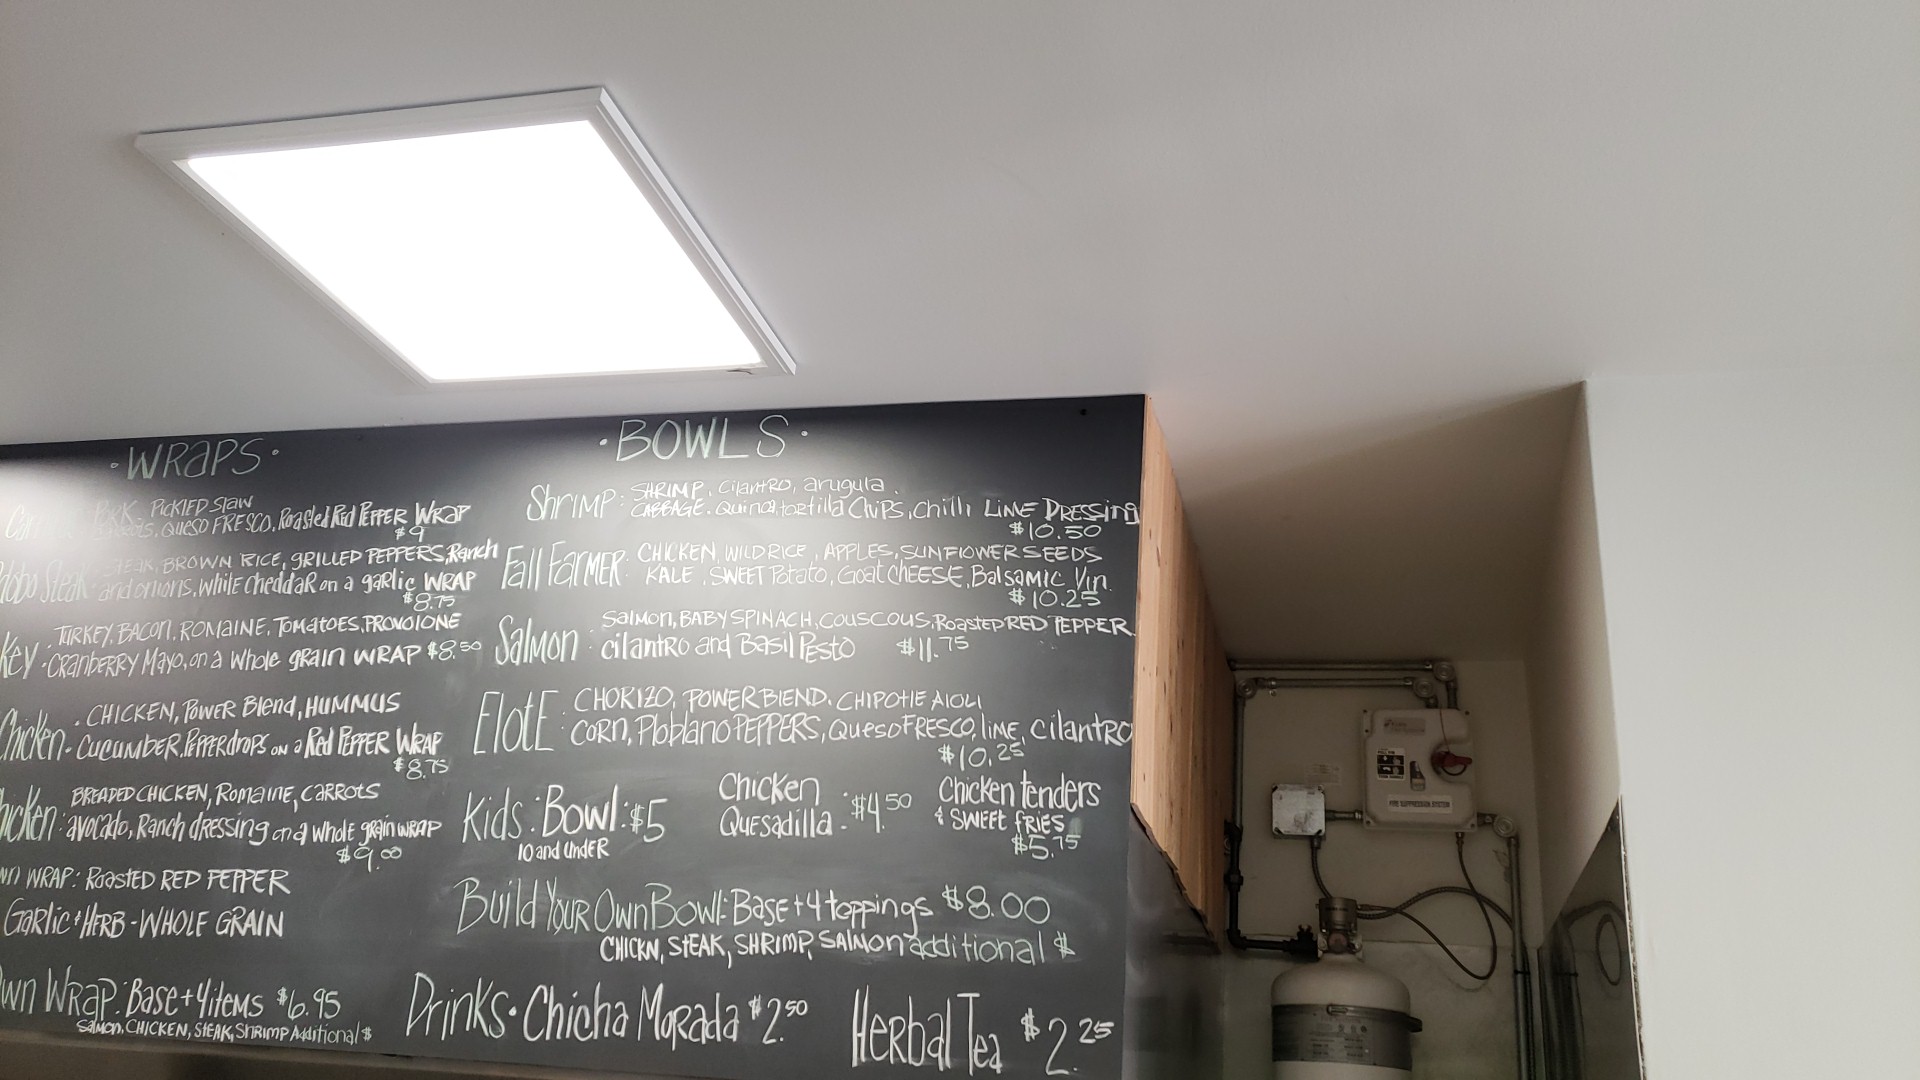 ·WRAPS·
PICKLED SLAW
QUESO FRESCO, Roasted Red PEPPER WRAP
$9
STEAK, BROWN RICE, GRILLED PEPPERS, Ranch
Steak and onions, White Cheddar on a garlic WRAP
$8.75
TURKEY, BACON, ROMAINE, TOMATOES, PROVOLONE
Key · CRANBERRY MAYO, on a Whole GRAIN WRAP $8.50
CHICKEN, Power Blend, HUMMUS
Chicken - CUCUMBER, PEPPERdrops on a Red PEPPER WRAP
$8.75
BREADED CHICKEN, Romaine, CARROTS
hicken: avocado, Ranch dressing on a whole grain WRAP
$9.00
wn WRAP: Roasted RED PEPPER
Garlic & HERB - WHOLE GRAIN
wn WRAP: Base + 4 items $6.95
Salmon, CHICKEN, STEAK, Shrimp Additional $
·BOWLS·
Shrimp: SHRIMP, cilantro, arugula
CABBAGE, Quinoa, tortilla CHIPS, Chilli LIME DRESSING
$10.50
Fall Farmer: CHICKEN, WILD RICE, APPLES, SUNFLOWER SEEDS
KALE, SWEET Potato, Goat CHEESE, Balsamic Vin.
$10.25
Salmon: Salmon, BABY SPINACH, COUSCOUS, Roasted RED PEPPER
cilantro and Basil Pesto $11.75
ElotE: CHORIZO, POWER BlEND, CHIPOTlE AIOLI
CORN, Ploblano PEPPERS, Queso FRESCO, lime, cilantro
$10.25
Kids: Bowl: $5
10 and UndER
Chicken
Quesadilla: $4.50
Chicken tenders
& SWEET fRIES
$5.75
Build Your Own Bowl: Base + 4 toppings $8.00
CHICKN, STEAK, SHRIMP, SALMON additional $
Drinks· Chicha Morada $2.50
Herbal Tea $2.25
FIRE SUPPRESSION SYSTEM